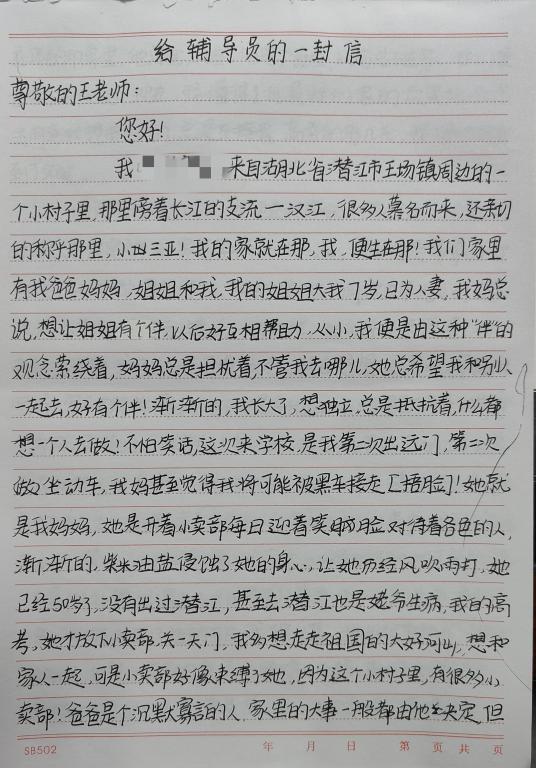 给辅导员的一封信
尊敬的王老师:
您好!
我 来自湖北省潜江市王场镇周边的一
个小村子里,那里傍着长江的支流—汉江,很多人慕名而来,还亲切
的称呼那里,小三亚!我的家就在那,我,便生在那!我们家里
有我爸爸妈妈,姐姐和我,我的姐姐大我7岁,已为人妻,我妈总
说,想让姐姐有个伴,以后好互相帮助,从小,我便是由这种"伴"的
观念萦绕着,妈妈总是担扰着,不管我去哪儿,她总希望我和别人
一起去,好有个伴!渐渐的,我长大了,想独立,总是抵抗着,什么都
想一个人去做!不怕笑话,这次来学校,是我第二次出远门,第二次
做坐动车,我妈甚至觉得我将可能被黑车接走[捂脸]!她就
是我妈妈,她是开着小卖部每日迎着笑脸对待着各色的人,
渐渐的,柴米油盐侵蚀了她的身心,让她历经风吹雨打,她
已经50岁了,没有出过潜江,甚至去潜江也是姥爷生病,我的高
考,她才放下小卖部,关一天门,我多想走走祖国的大好河山,想和
家人一起,可是小卖部好像束缚了她,因为这个小村子里,有很多小
卖部!爸爸是个沉默寡言的人,家里的大事一般都由他决定,但
SB502 年 月 日 第 页 共 页